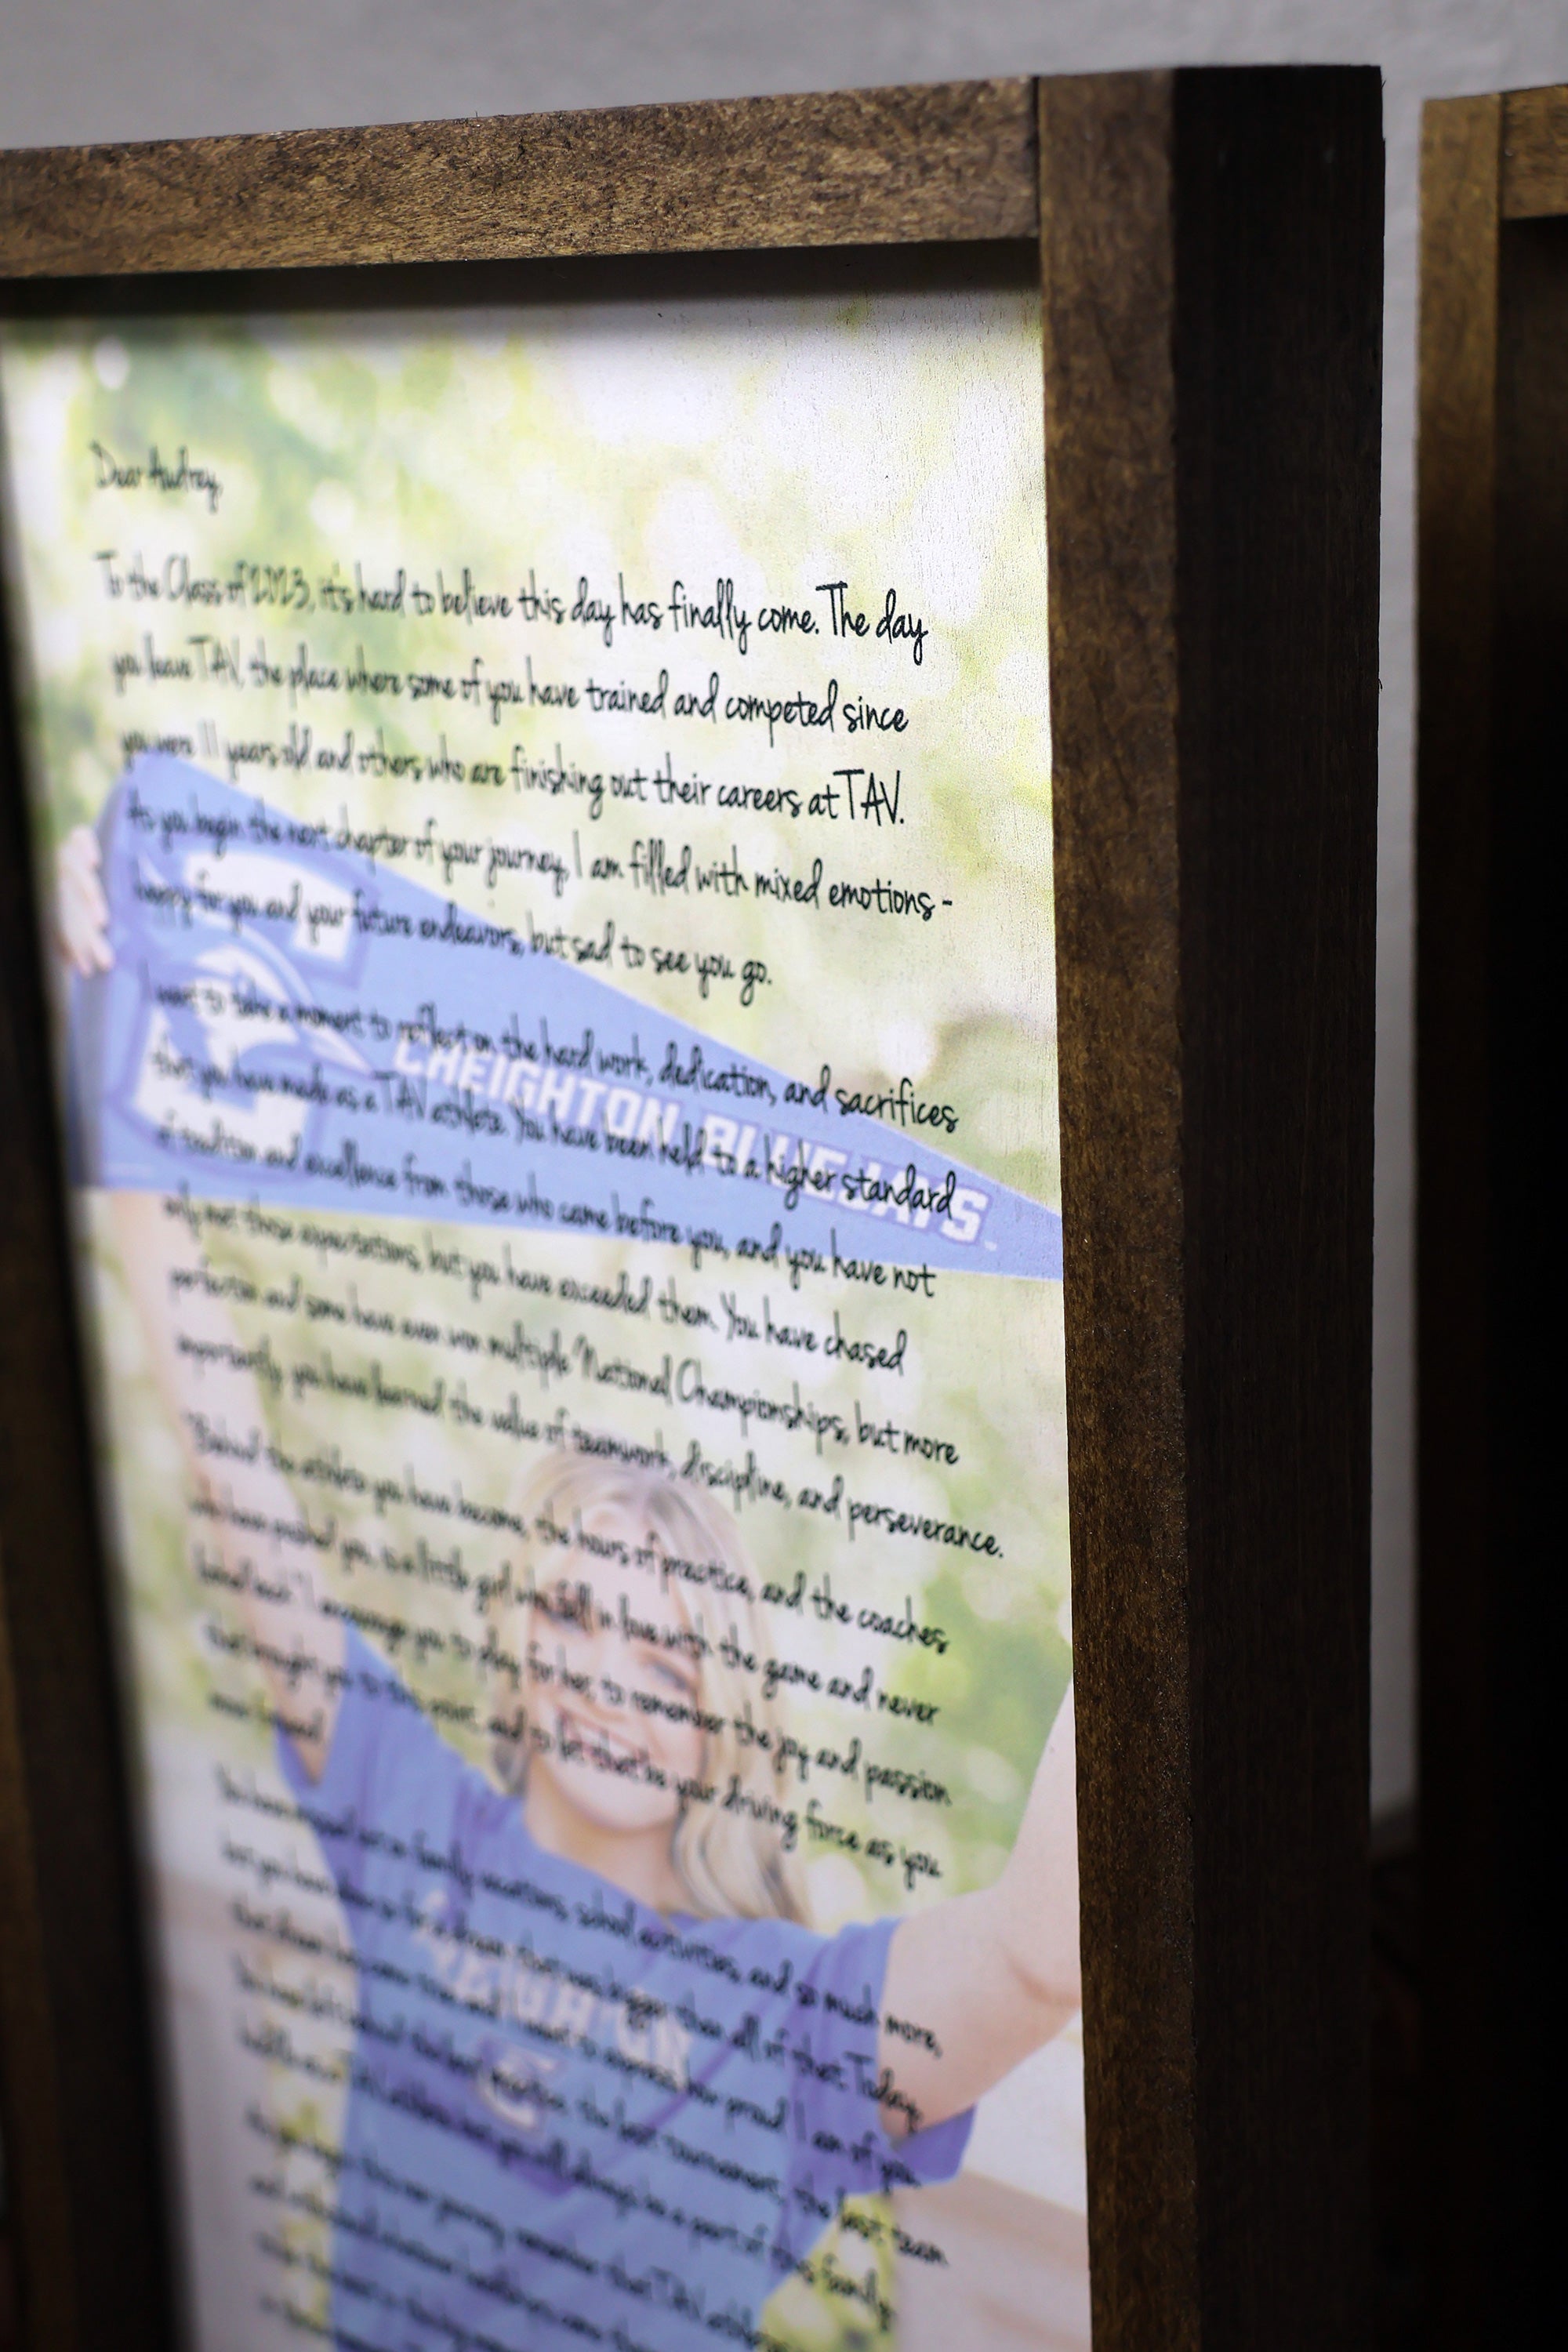 Dear Audrey,
To the Class of 2023, it's hard to believe this day has finally come. The day
you leave TAV, the place where some of you have trained and competed since
you were 11 years old and others who are finishing out their careers at TAV.
As you begin the next chapter of your journey, I am filled with mixed emotions -
happy for you and your future endeavors, but sad to see you go.
want to take a moment to reflect on the hard work, dedication, and sacrifices
that you have made as a TAV athlete. You have been held to a higher standard
of tradition and excellence from those who came before you, and you have not
only met those expectations, but you have exceeded them. You have chased
perfection and some have even won multiple National Championships, but more
importantly, you have learned the value of teamwork, discipline, and perseverance.
"Behind the athlete you have become, the hours of practice, and the coaches
who have pushed you, is a little girl who fell in love with the game and never
looked back." I encourage you to play for her, to remember the joy and passion
that brought you to this point, and to let that be your driving force as you
move forward.
You have missed out on family vacations, school activities, and so much more,
but you have done so for a dream that was bigger than all of that. Today,
that dream has come true and I want to express how proud I am of you.
the last practice, the last tournament, the last team
TAV athlete, but you will always be a part of this family.
As you begin this new journey, remember that TAV
CREIGHTON BLUEJAYS
CREIGHTON